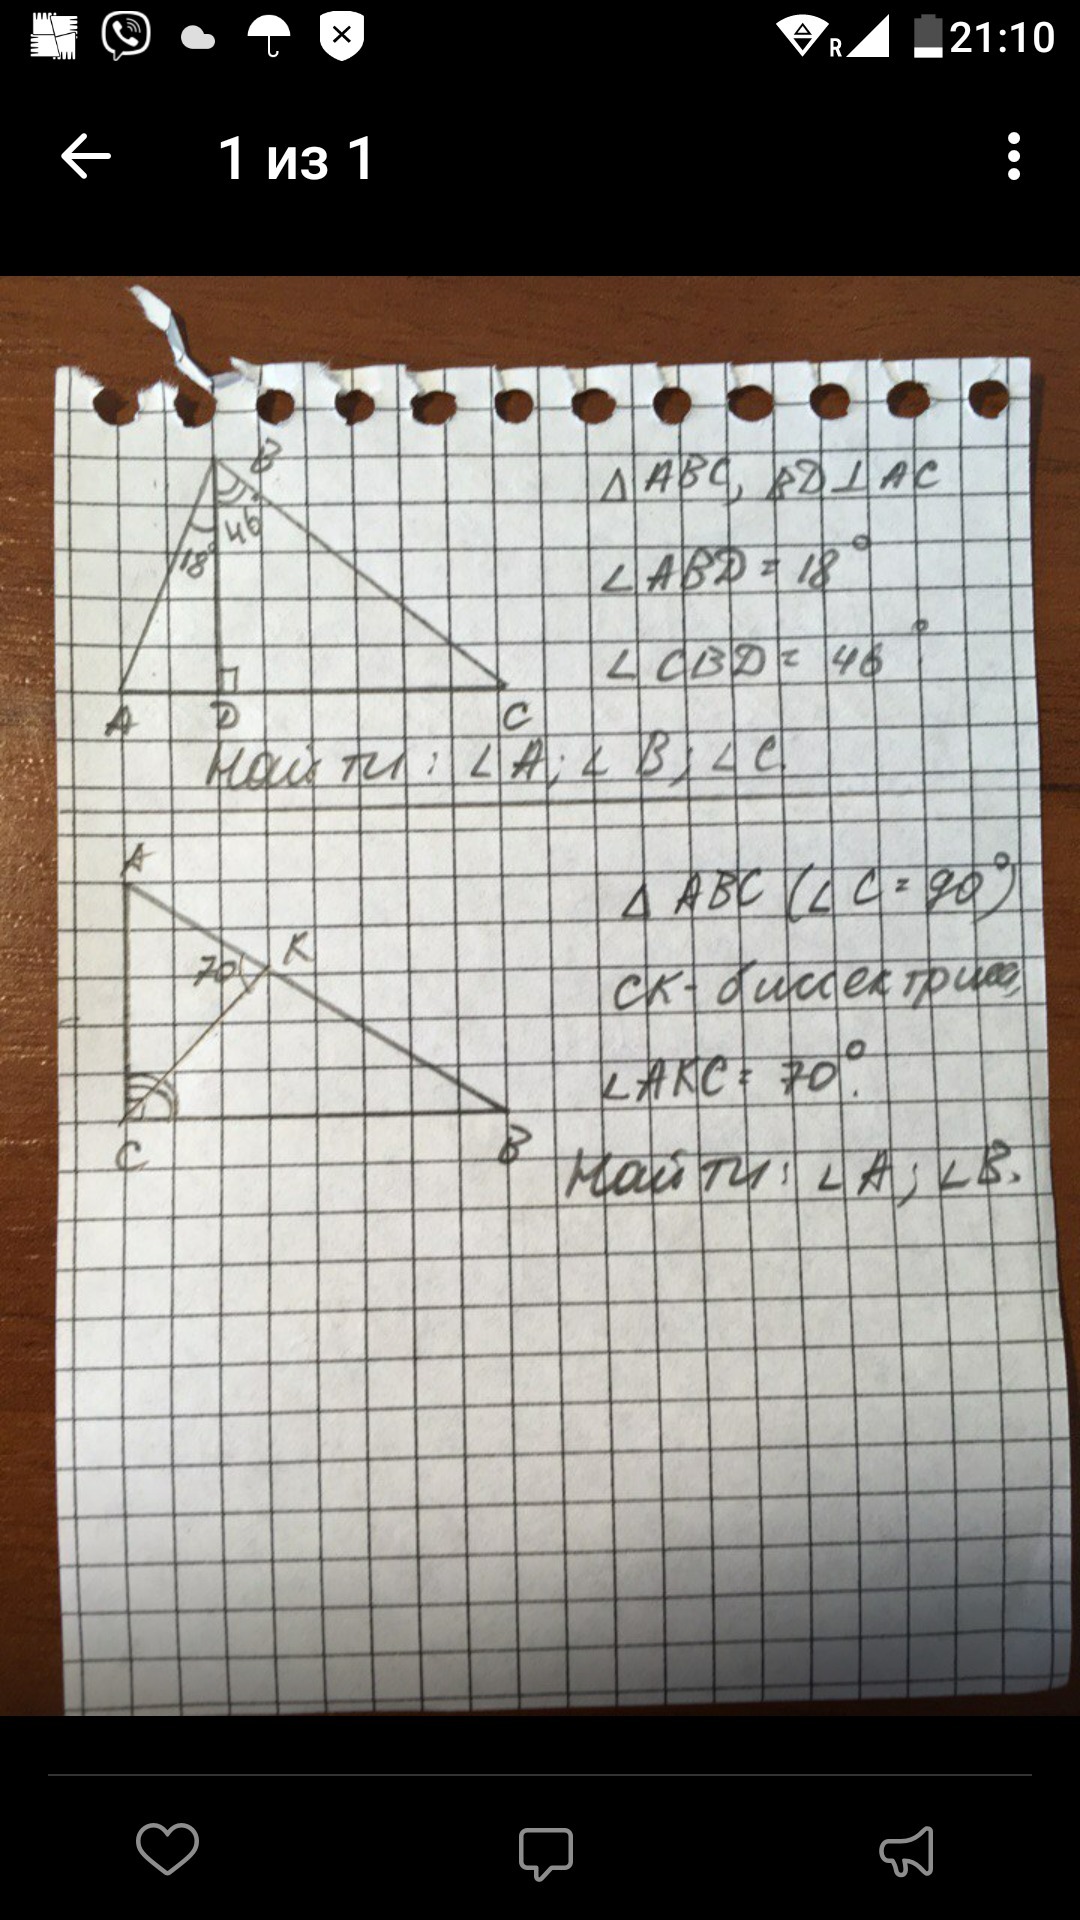 R 21:10
1 из 1
B
46°
18°
A D C
△ ABC, BD⊥AC
∠ABD = 18°
∠CBD = 46°
Найти: ∠A; ∠B; ∠C.
A
K
70
C
B
△ ABC (∠C = 90°)
CK - биссектриса,
∠AKC = 70°.
Найти: ∠A; ∠B.